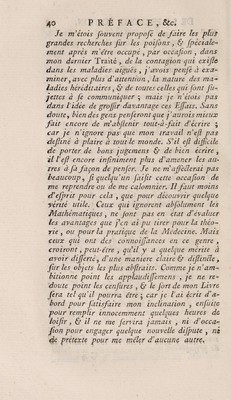 40 PRÉFACE, &c.
Je m'étois souvent proposé de faire les plus
grandes recherches sur les poisons, & spéciale-
ment après m'être occupé, par occasion, dans
mon dernier Traité, de la contagion qui existe
dans les maladies aiguës, j'avois pensé à exa-
miner, avec plus d'attention, la nature des ma-
ladies héréditaires, & de toutes celles qui sont su-
jettes à se communiquer ; mais je n'étois pas
dans l'idée de grossir davantage ces Essais. Sans
doute, bien des gens penseront que j'aurois mieux
fait encore de m'abstenir tout-à-fait d'écrire ;
car je n'ignore pas que mon travail n'est pas
destiné à plaire à tout le monde. S'il est difficile
de porter de bons jugemens & de bien écrire,
il l'est encore infiniment plus d'amener les au-
tres à sa façon de penser. Je ne m'affecterai pas
beaucoup, si quelqu'un saisit cette occasion de
me reprendre ou de me calomnier. Il faut moins
d'esprit pour cela, que pour découvrir quelque
vérité utile. Ceux qui ignorent absolument les
Mathématiques, ne sont pas en état d'évaluer
les avantages que j'en ai pu tirer pour la théo-
rie, ou pour la pratique de la Médecine. Mais
ceux qui ont des connoissances en ce genre,
croiront, peut-être, qu'il y a quelque mérite à
avoir disserté, d'une maniere claire & distincte,
sur les objets les plus abstraits. Comme je n'am-
bitionne point les applaudissemens, je ne re-
doute point les censures, & le sort de mon Livre
sera tel qu'il pourra être ; car je l'ai écrit d'a-
bord pour satisfaire mon inclination, ensuite
pour remplir innocemment quelques heures de
loisir, & il ne me servira jamais, ni d'occa-
sion pour engager quelque nouvelle dispute, ni
de prétexte pour me mêler d'aucune autre.